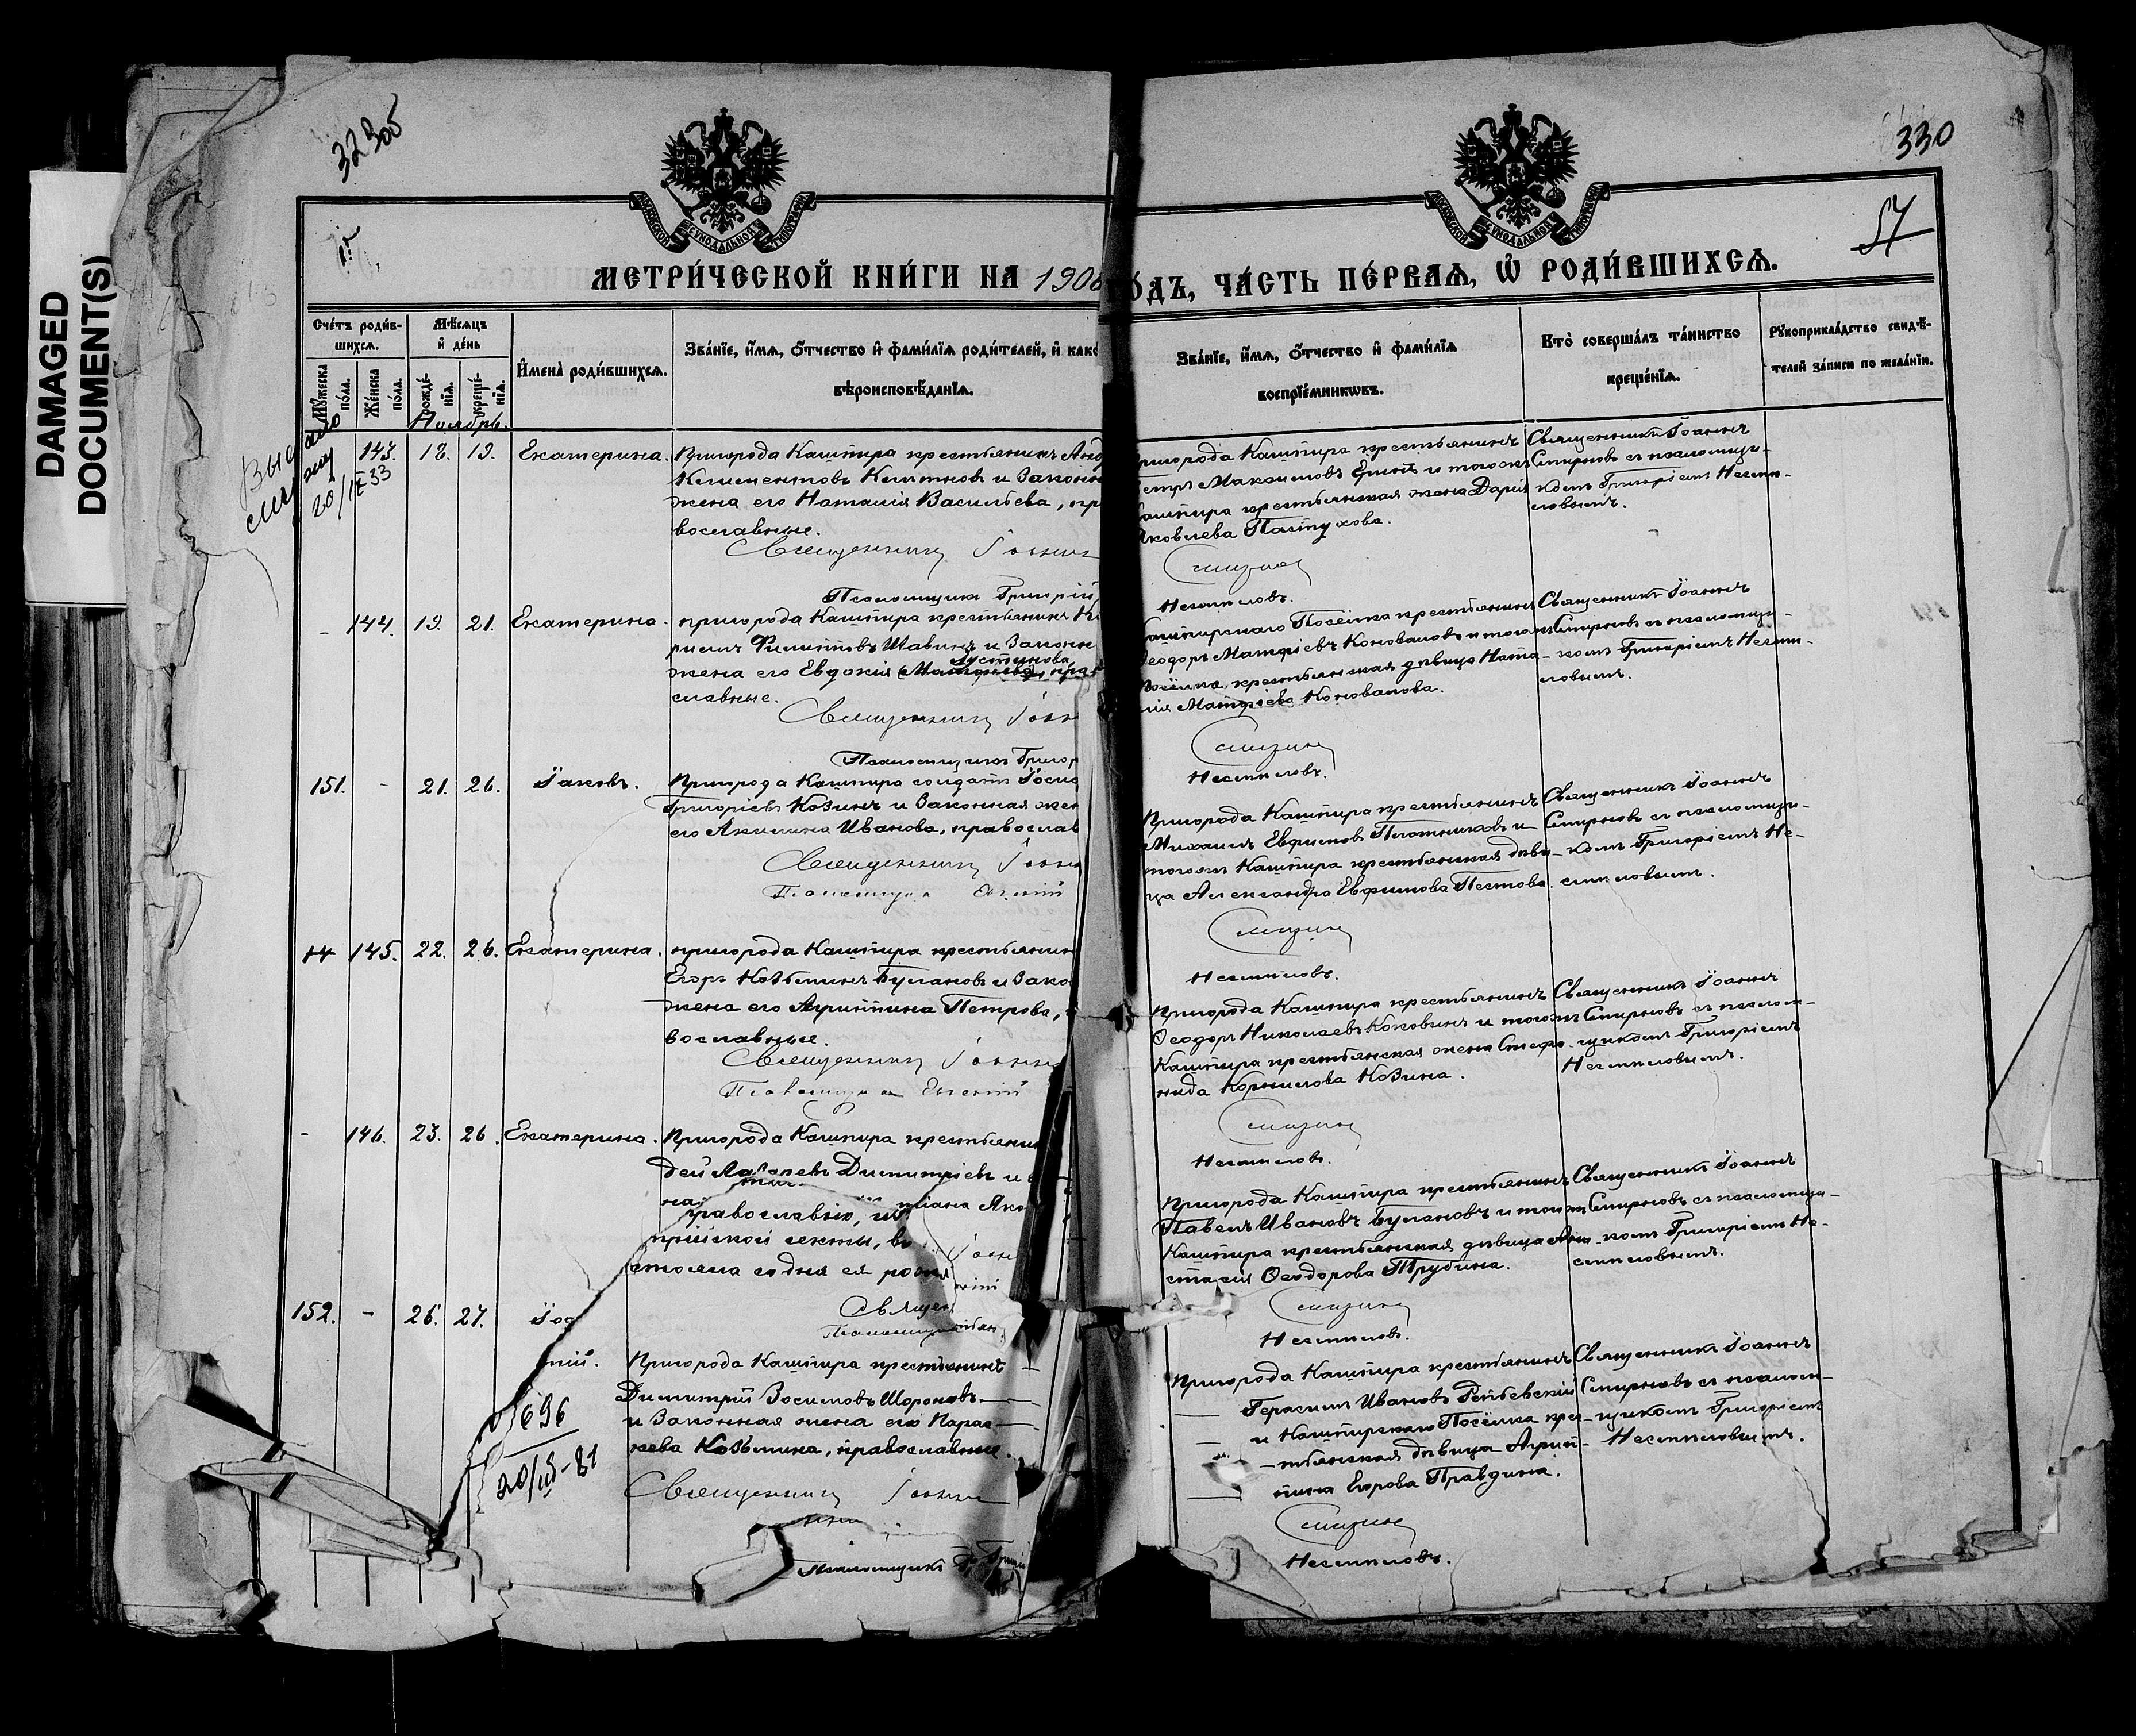 DAMAGED
DOCUMENT(S)
330
57
МОСКОВСКОЙ СУНОДАЛЬНОЙ ТИПОГРАФІИ
МОСКОВСКОЙ СУНОДАЛЬНОЙ ТИПОГРАФІИ
МЕТРИ́ЧЕСКОЙ КНИ́ГИ НА 1908
О́ДЪ, ЧА́СТЬ ПЕ́РВАѦ, Ѡ҆ РОДИ́ВШИХСѦ.
Сче́тъ роди́в-
шихсѧ.
Мꙋ́жеска по́ла.
Же́нска по́ла.
Мѣ́сѧцъ и҆ де́нь
рожде́-нїѧ.
креще́-нїѧ.
И҆мена̀ роди́вшихсѧ.
Зва́нїе, и҆́мѧ, ѻ҆́тчество и҆ фами́лїѧ роди́телей, и҆ како́
вѣроисповѣ́данїѧ.
Зва́нїе, и҆́мѧ, ѻ҆́тчество и҆ фами́лїѧ
воспрїе́мникѡвъ.
Кто̀ соверша́лъ та́инство
креще́нїѧ.
Рꙋкоприкла́дство свидѣ́-
телей за́писи по жела́нїю.
Ноябрь.
20/IX 33
143. 18. 19. Екатерина.
Пригорода Кашпира крестьянинъ Анд
Климентовъ и законн
жена его Наталія Васильева, пр
вославные.
Священникъ Іоанн
Псаломщикъ Григорій
Пригорода Кашпира крестьянинъ
Петръ Максимовъ Еринъ и тогож
Кашпира крестьянская жена Дарія
Яковлева Пастухова.
Смирнов
Несмѣловъ.
Священникъ Іоаннъ
Смирновъ съ псаломщи-
комъ Григоріемъ Несмѣ-
ловымъ.
- 144. 19. 21. Екатерина.
пригорода Кашпира крестьянинъ Ки
риллъ Филипповъ Шавинъ и законн
Іустинова
жена его Евдокія (Матфеева), прав
славные.
Священникъ Іоан
Псаломщикъ Григор
Кашпирскаго Посёлка крестьянинъ
Ѳеодоръ Матфіевъ Коноваловъ и тогож
Посёлка, крестьянская дѣвица Ната-
лія Матфіева Коновалова.
Смирнов
Несмѣловъ.
Священникъ Іоаннъ
Смирновъ съ псаломщи-
комъ Григоріемъ Несмѣ-
ловымъ.
151. - 21. 26. Іаковъ.
Пригорода Кашпира солдатъ Іоси
Григоріевъ Козинъ и законная жен
его Акилина Иванова, православ
Священникъ Іоан
Псаломщикъ
Пригорода Кашпира крестьянинъ
Михаилъ Евфимовъ Плотниковъ и
тогожъ Кашпира крестьянская дѣви-
ца Александра Евфимова Пестова.
Смирнов
Несмѣловъ.
Священникъ Іоаннъ
Смирновъ съ псаломщи-
комъ Григоріемъ Не-
смѣловымъ.
145. 22. 26. Екатерина.
пригорода Кашпира крестьянин
Егоръ Козьминъ Булановъ и зако
жена его Агриппина Петрова,
вославные.
Священникъ Іоанн
Псаломщикъ
Пригорода Кашпира крестьянинъ
Ѳеодоръ Николаевъ Коковинъ и тогожъ
Кашпира крестьянская жена Стефа-
нида Корнилова Козина.
Смирнов
Несмѣловъ.
Священникъ Іоаннъ
Смирновъ съ псалом-
щикомъ Григоріемъ
Несмѣловымъ.
- 146. 23. 26. Екатерина.
Пригорода Кашпира крестьянин
Димитріевъ и
на
православію, из
прійской секты, в
стояла со дня ея рожд
Священ
Псаломщикъ
Пригорода Кашпира крестьянинъ
Павелъ Ивановъ Булановъ и тогож
Кашпира крестьянская дѣвица Ана-
стасія Ѳеодорова Трубина.
Смирнов
Несмѣловъ.
Священникъ Іоаннъ
Смирновъ съ псаломщи-
комъ Григоріемъ Не-
смѣловымъ.
152. - 26. 27.
696
20/III-81
Пригорода Кашпира крестьянинъ
Димитрій Зосимовъ Шороновъ
и законная жена его Парас-
кева Козьмина, православные.
Священникъ Іоанн
Псаломщикъ
Пригорода Кашпира крестьянинъ
Герасимъ Ивановъ Репьевскій
и Кашпирскаго Посёлка кре-
стьянская дѣвица Агрип-
пина Егорова Правдина.
Смирнов
Несмѣловъ.
Священникъ Іоаннъ
Смирновъ съ псалом-
щикомъ Григоріемъ
Несмѣловымъ.